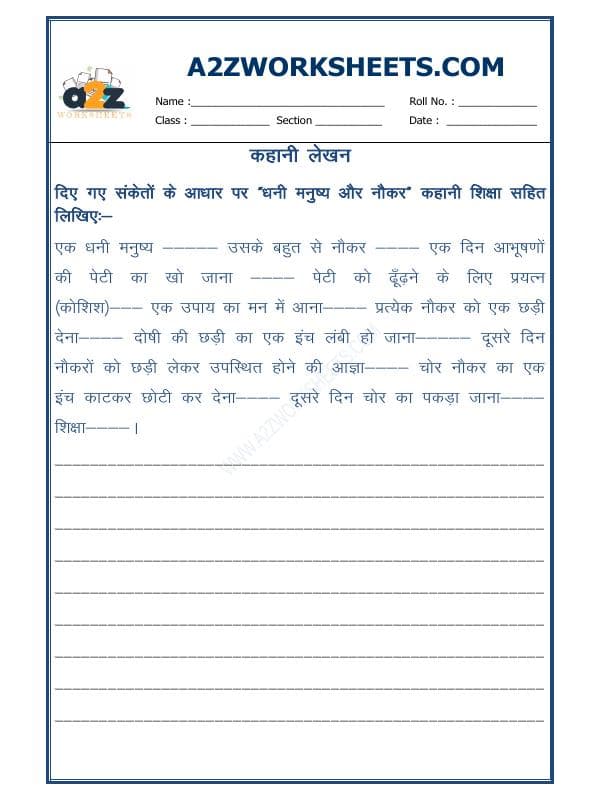 a2z
WORKSHEETS
A2ZWORKSHEETS.COM
Name :________________________________ Roll No. : _____________
Class : _____________ Section ___________ Date : _______________
कहानी लेखन
दिए गए संकेतों के आधार पर "धनी मनुष्य और नौकर" कहानी शिक्षा सहित
लिखिए:—
एक धनी मनुष्य ––––– उसके बहुत से नौकर –––– एक दिन आभूषणों
की पेटी का खो जाना –––– पेटी को ढूँढ़ने के लिए प्रयत्न
(कोशिश)––– एक उपाय का मन में आना–––– प्रत्येक नौकर को एक छड़ी
देना–––– दोषी की छड़ी का एक इंच लंबी हो जाना––––– दूसरे दिन
नौकरों को छड़ी लेकर उपस्थित होने की आज्ञा–––– चोर नौकर का एक
इंच काटकर छोटी कर देना–––– दूसरे दिन चोर का पकड़ा जाना––––
शिक्षा–––– ।
WWW.A2ZWORKSHEETS.COM